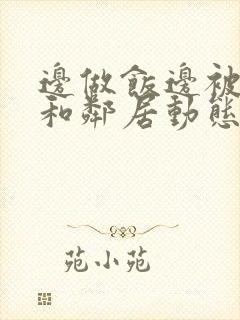 邊做飯邊被
和鄰居動態
苑小苑